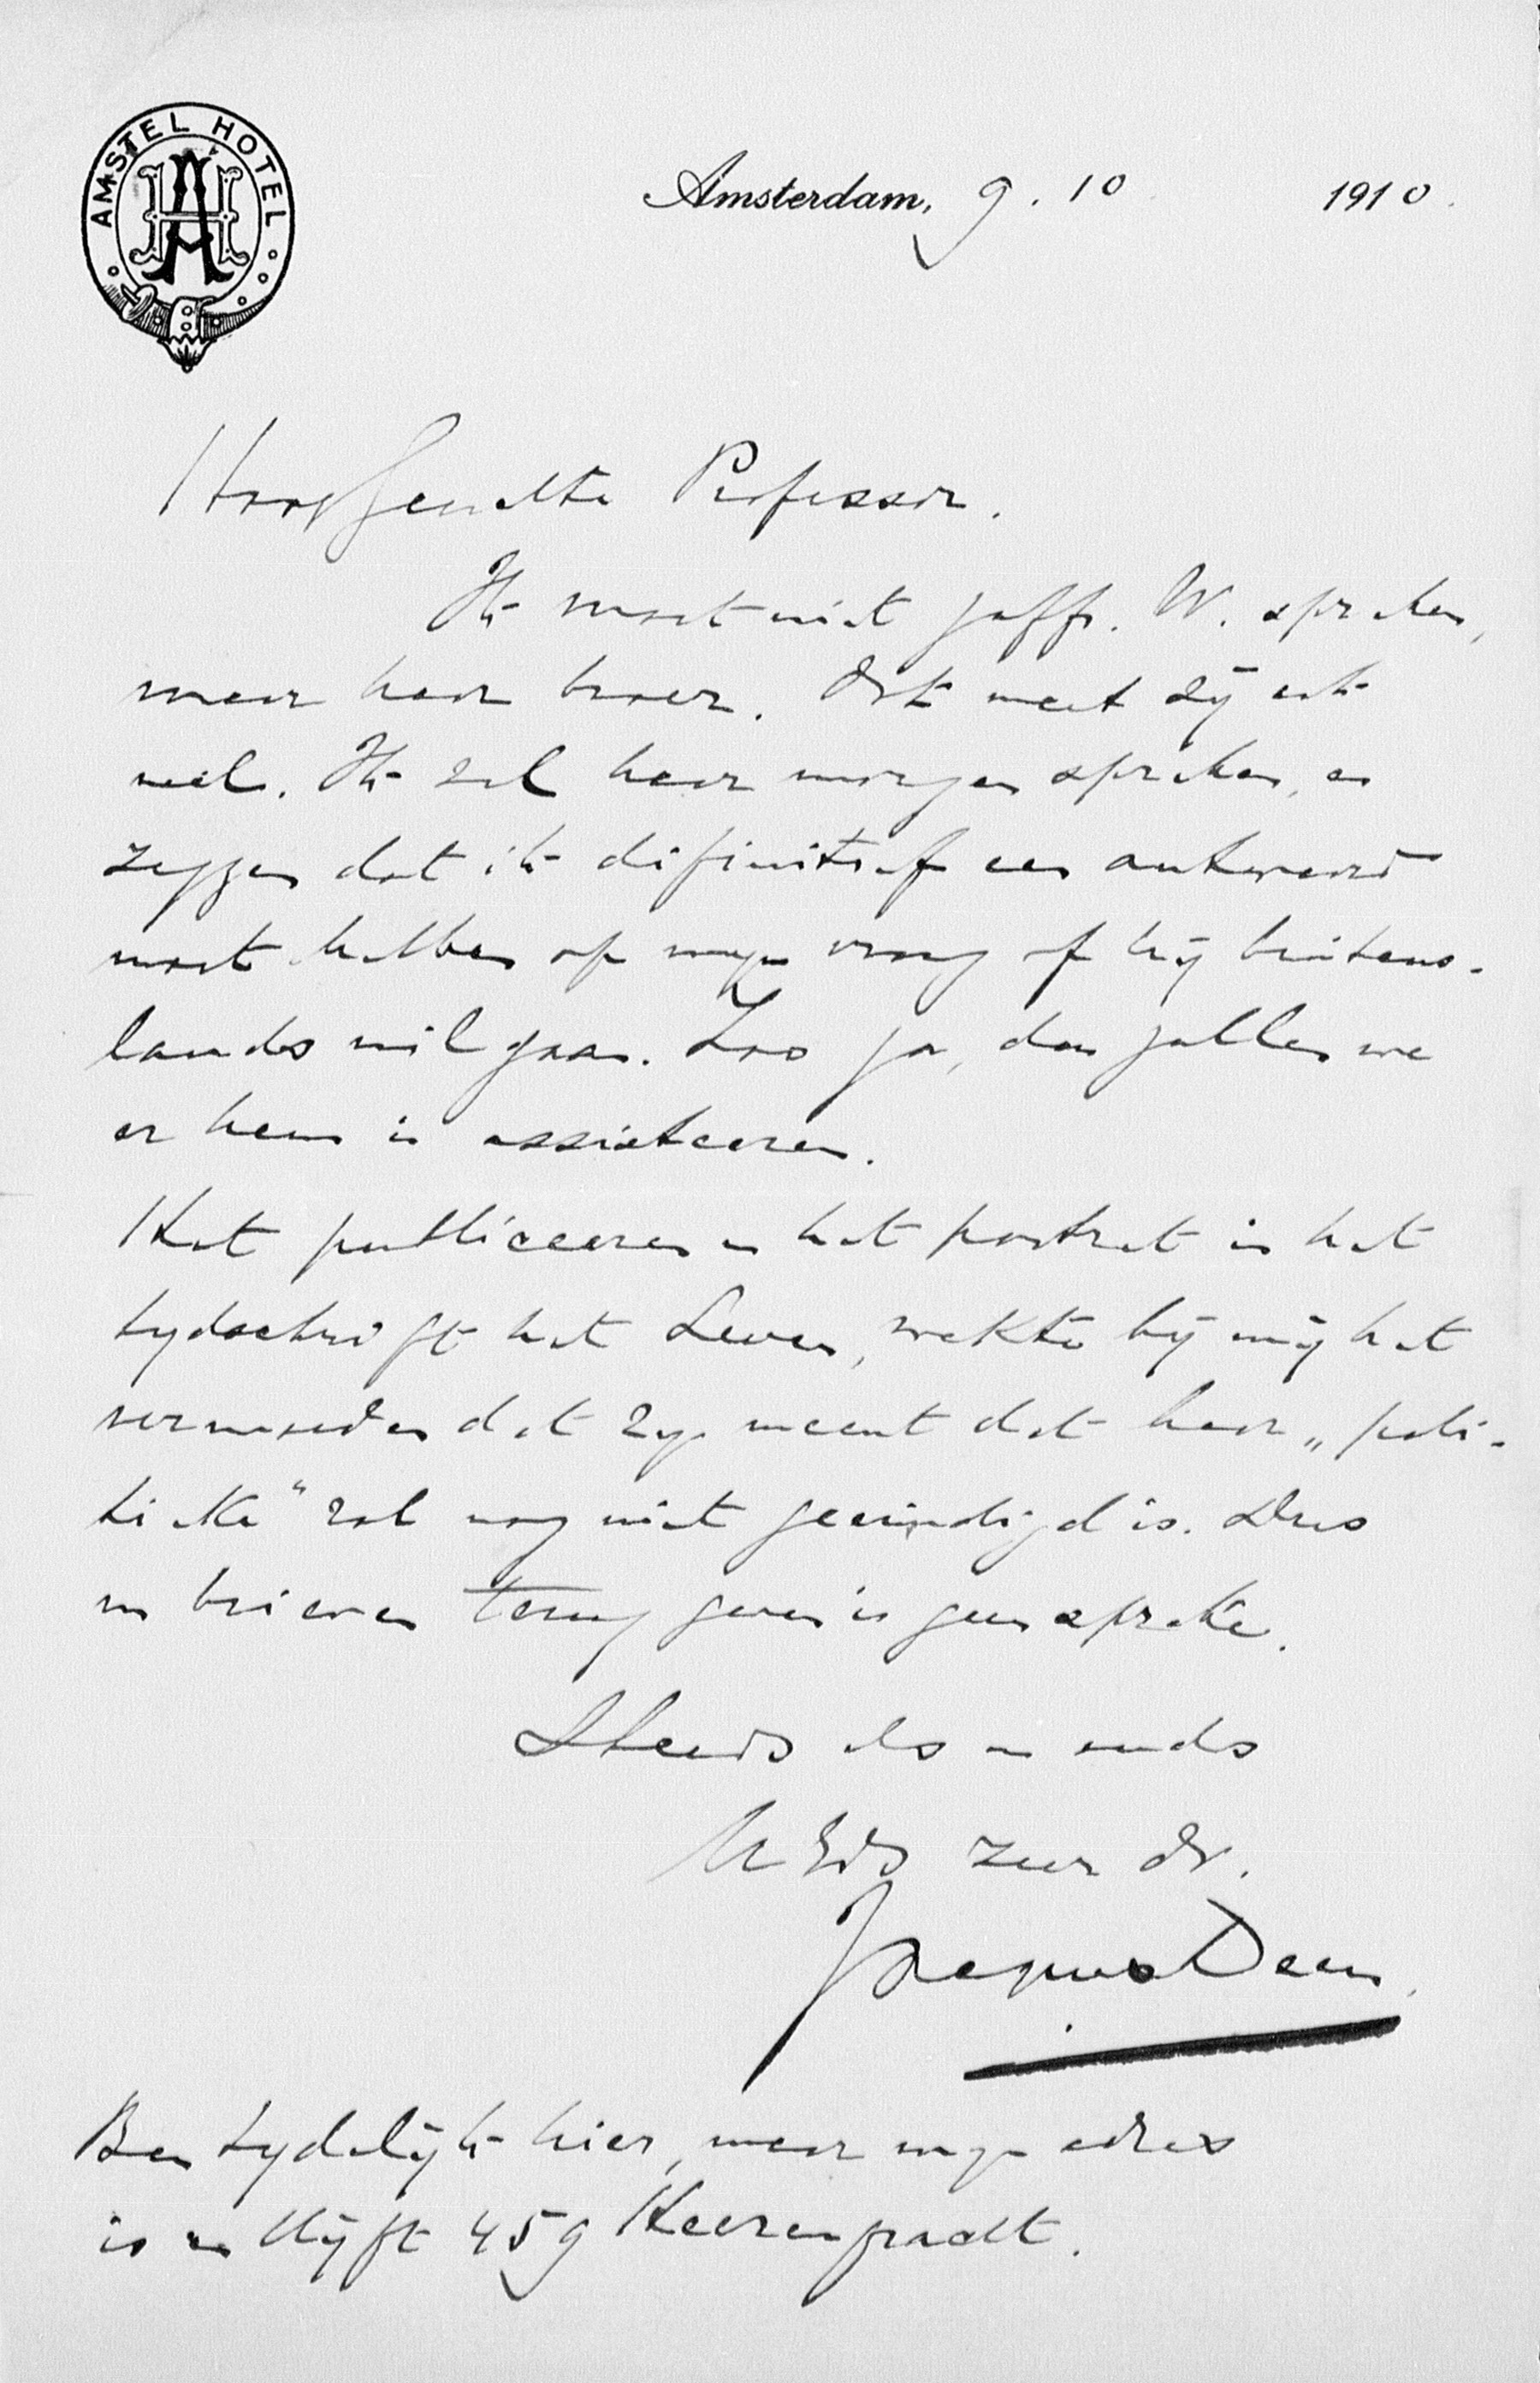 AMSTEL HOTEL
AH
Amsterdam, 9. 10 1910.
Hooggeachte Professor.
Ik moet niet juffr. W. spreken,
maar haar broer. Dat weet zij ook
wel. Ik zal haar morgen spreken, en
zeggen dat ik difinitief een antwoord
moet hebben op mijn vraag of hij buitens-
lands wil gaan. Zoo ja, dan zullen we
er hem in assisteeren.
Het publiceeren v het portret in het
tydschrift het Leven, wekte bij mij het
vermoeden dat zy meent dat haar „poli-
tieke" rol nog niet geëindigd is. Dus
v brieven terug geven is geen sprake.
Steeds als v ouds
UEd zeer dr.
Jacques Deen.
Ben tydelijk hier, maar myn adres
is en blijft 459 Heerengracht.